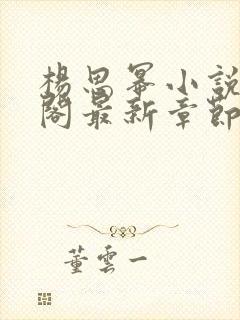 楊思冪小說
閣最新章節
董雲一